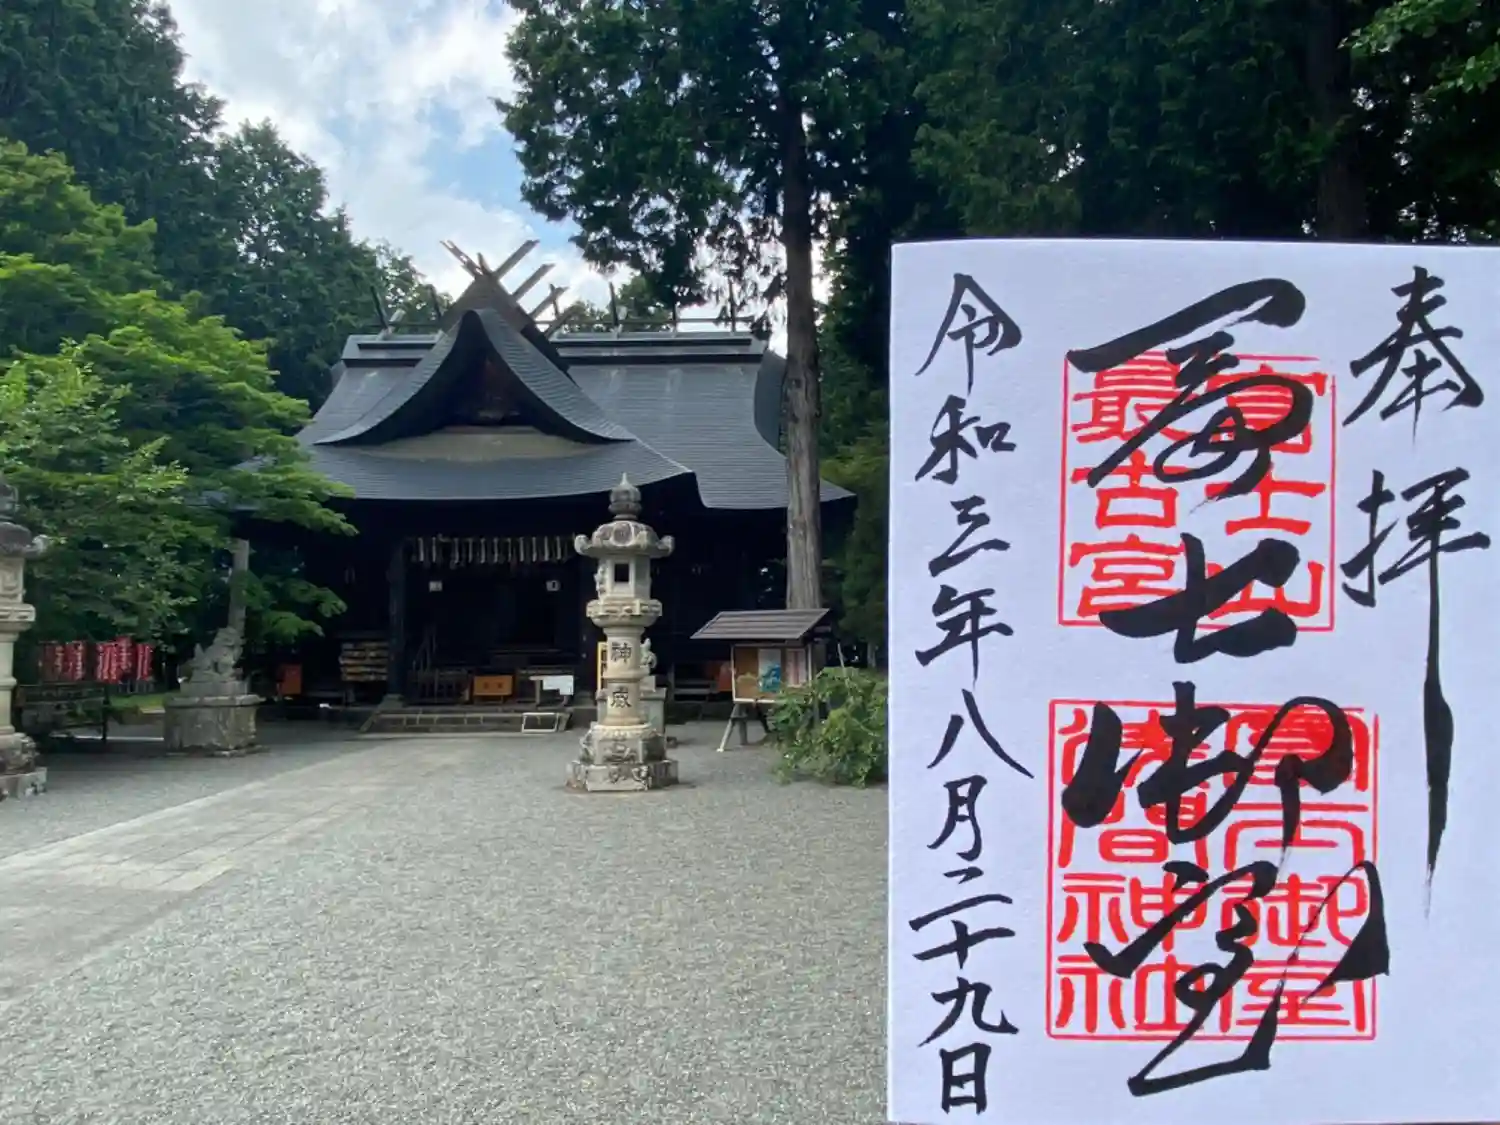 奉拝
冨士御室
富士山
最古宮
冨士御室
浅間神社
令和三年八月二十九日
神威